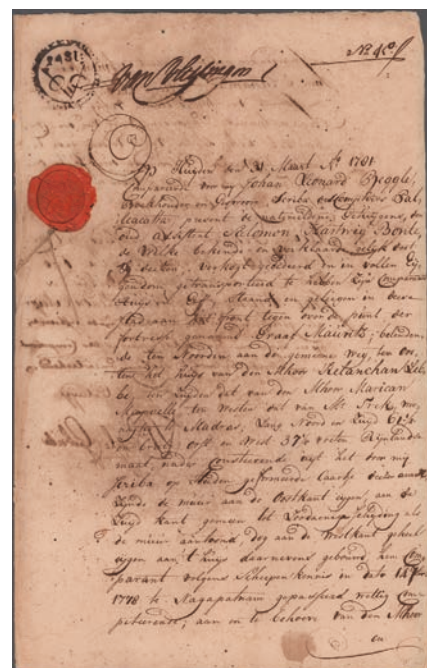 2481
No. 48
Op Huyden den 31 Maart Ao 1781
Compareerde voor mij Johan Leonard Beggle,
en Gesworen Scriba
present de
oud assistent Salomon Hartwig Bonte,
de Welke bekende en verklaarde
desen, verkogt gecedeerd en in vollen Ey
gendom getransporteerd te hebben Zijn Comparants
Huys en Erf, Staande en gelegen in dese
Stad aan het punt tegen over de punt der
fortresse genaamd Graaf Maurits; belenden
de ten Noorden aan de gemeene weg, ten Oos
ten het huys van den Mhoor Ketanchan Leb
be, ten Zuyden dat van den Mhoor Marican
ten Westen dat van Mr.
Madras, Lang Noord en Zuyd 61½
en breed oost en West 37½ voeten Rijnlandse
maat, nader Consteerende uijt het door mij
Scriba op heeden geformeerde Caartje
Zijnde de muur aan de Oostkant eygen, aan de
Zuyd kant gemeen tot
de muur aantoond, dog aan de Westkant geheel
eygen aan 't huys daarnevens gebouwd, hem Com
parant volgens Scheepen kennis en dato 14
1778 te Nagapatnam gepasseerd wettig Com
peteerende; aan en te behoeve van den Mhoor
en